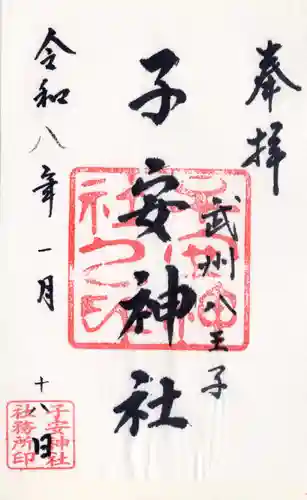 奉拝
武州八王子
子安神社
令和八年一月
十八日
子安神社
社務所印